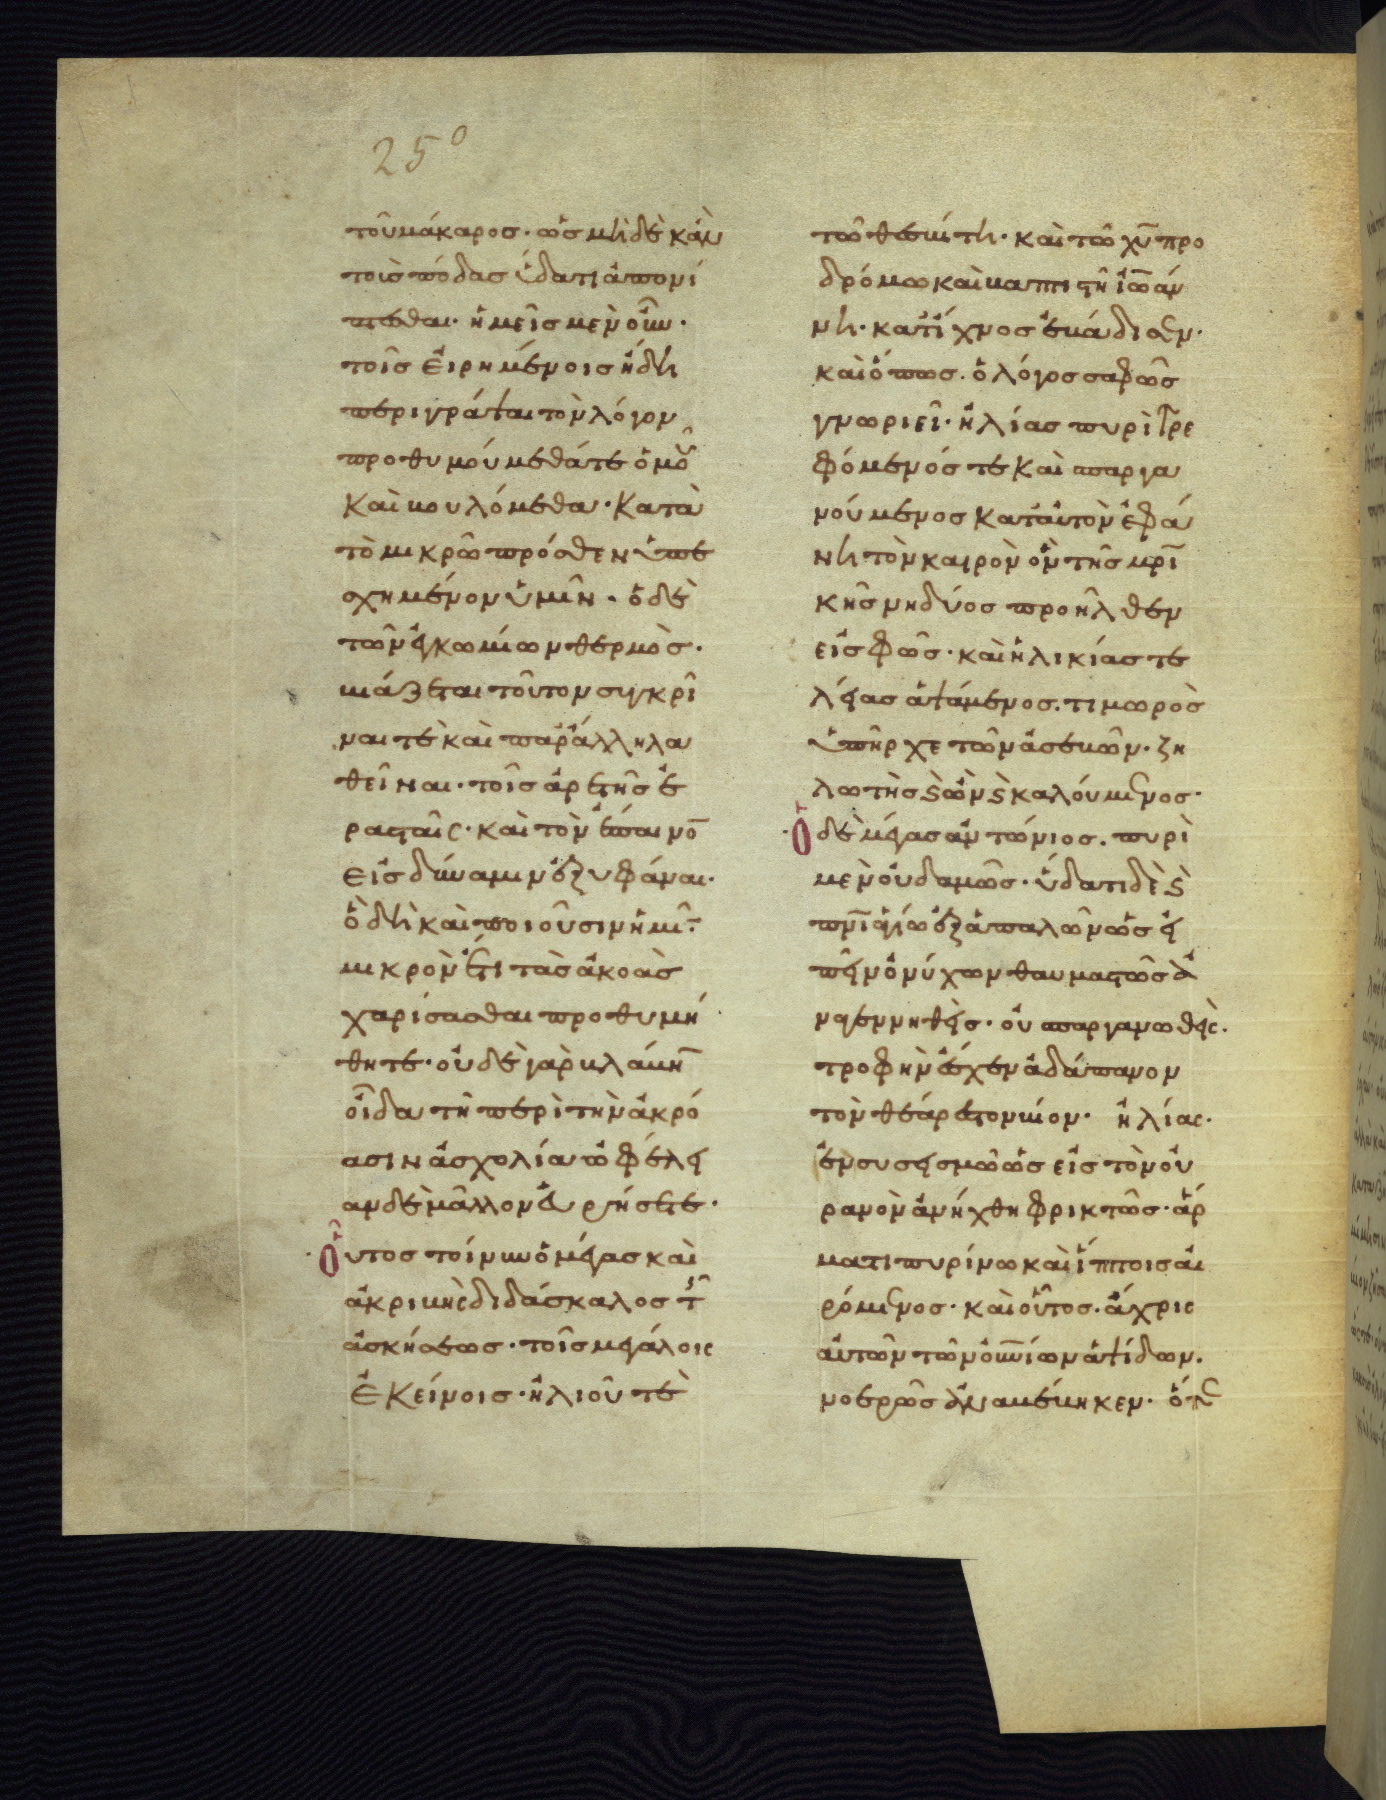 25⁰
τοῦ μάκαρος· ὡς μηδὲ κἂν
τοὺς πόδας ὕδατι ἀπονί
πτεσθαι· ἡμεῖς μὲν οὖν·
τοῖς εἰρημένοις ἤδη
περιγράψαι τὸν λόγον
προθυμούμεθά τε ὁμοῦ
καὶ βουλόμεθα· κατὰ
τὸ μικρῶ πρόσθεν ὑπε
σχημένον ὑμῖν· ὁ δὲ
τῶν ἐγκωμίων θερμὸς·
βιάζεται τοῦτον συγκρῖ
ναι τὲ καὶ παράλληλα
θεῖναι· τοῖς ἀρετῆς ἐ
ρασταῖς· καὶ τὸν ἔπαινο̅
εἰς δύναμιν ἐξυφάναι·
ὃ δὴ καὶ ποιοῦσιν ἡμῖ̅·
μικρὸν ἔτι τὰς ἀκοὰς
χαρίσασθαι προθυμή
θητε· οὐδὲ γὰρ βλάβη̅
οἶδα τῆ περὶ τὴν ἀκρό
ασιν ἀσχολία ὠφέλει
αν δὲ μᾶλλον εὑρήσετε·
Οὗτος τοίνυν ὁ μέγας καὶ
ἀκριβὴς διδάσκαλος τῆς
ἀσκήσεως· τοῖς μεγάλοις
ἐκείνοις· ἡλιοῦ τὲ
τῶ θεσβίτη· καὶ τῶ χυ̅ προ
δρόμω καὶ βαπτιστῆ ἰω̅άν
νη· κατίχνος ἐβάδισεν·
καὶ ὅπως· ὁ λόγος σαφῶς
γνωριεῖ· ἡλίας πυρὶ τρε
φόμενός τε καὶ σπαργα
νούμενος κατ' αυτὸν ἐφά
νη τὸν καιρὸν ὃν τῆς μρι̅
κῆς νηδύος προῆλθεν
εἰς φῶς· καὶ ἡλικίας τε
λείας ἁψάμενος· τιμωρὸς
ὑπῆρχε τῶν ἀσεβῶν· ζη
λωτὴς καὶ ὢν καὶ καλούμενος·
Ὁ δὲ μέγας ἀντώνιος· πυρὶ
μὲν οὐδαμῶς· ὕδατι δὲ καὶ
πνι̅ ἁγίω ἐξ ἁπαλῶν ὡς εἰ
πεῖν ὀνύχων θαυμαστῶς ἀ
ναγεννηθεὶς· οὐ σπαργανωθεὶς·
τροφὴν ἔσχεν ἀδάπανον
τὸν θεάρεστον βίον· ἡλίας·
ἐν συσσεισμῶ ὡς εἰς τὸν οὐ
ρανὸν ἀνήχθη φρικτῶς· ἅρ
ματι πυρίνω καὶ ἵπποις αἰ
ρόμενος· καὶ οὗτος· ἄχρις
αὐτῶν τῶν οὐνίων ἁψίδων·
νοερῶς ἀναβέβηκεν·